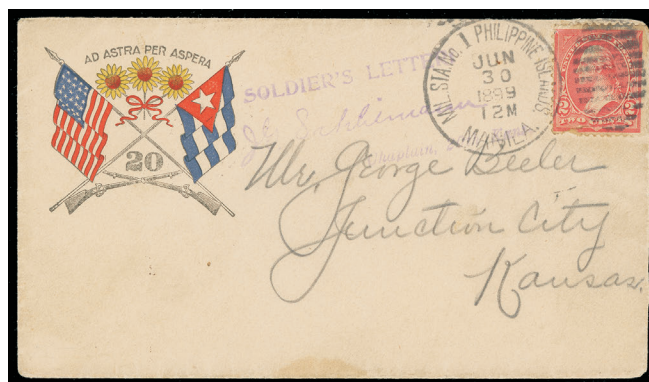 AD ASTRA PER ASPERA
20
SOLDIER'S LETTER
Chaplain,
MIL. STA. No. 1 PHILIPPINE ISLANDS
JUN
30
1899
12M
MANILA
2 2
TWO
Mr. George Beeler
Junction City
Kansas.